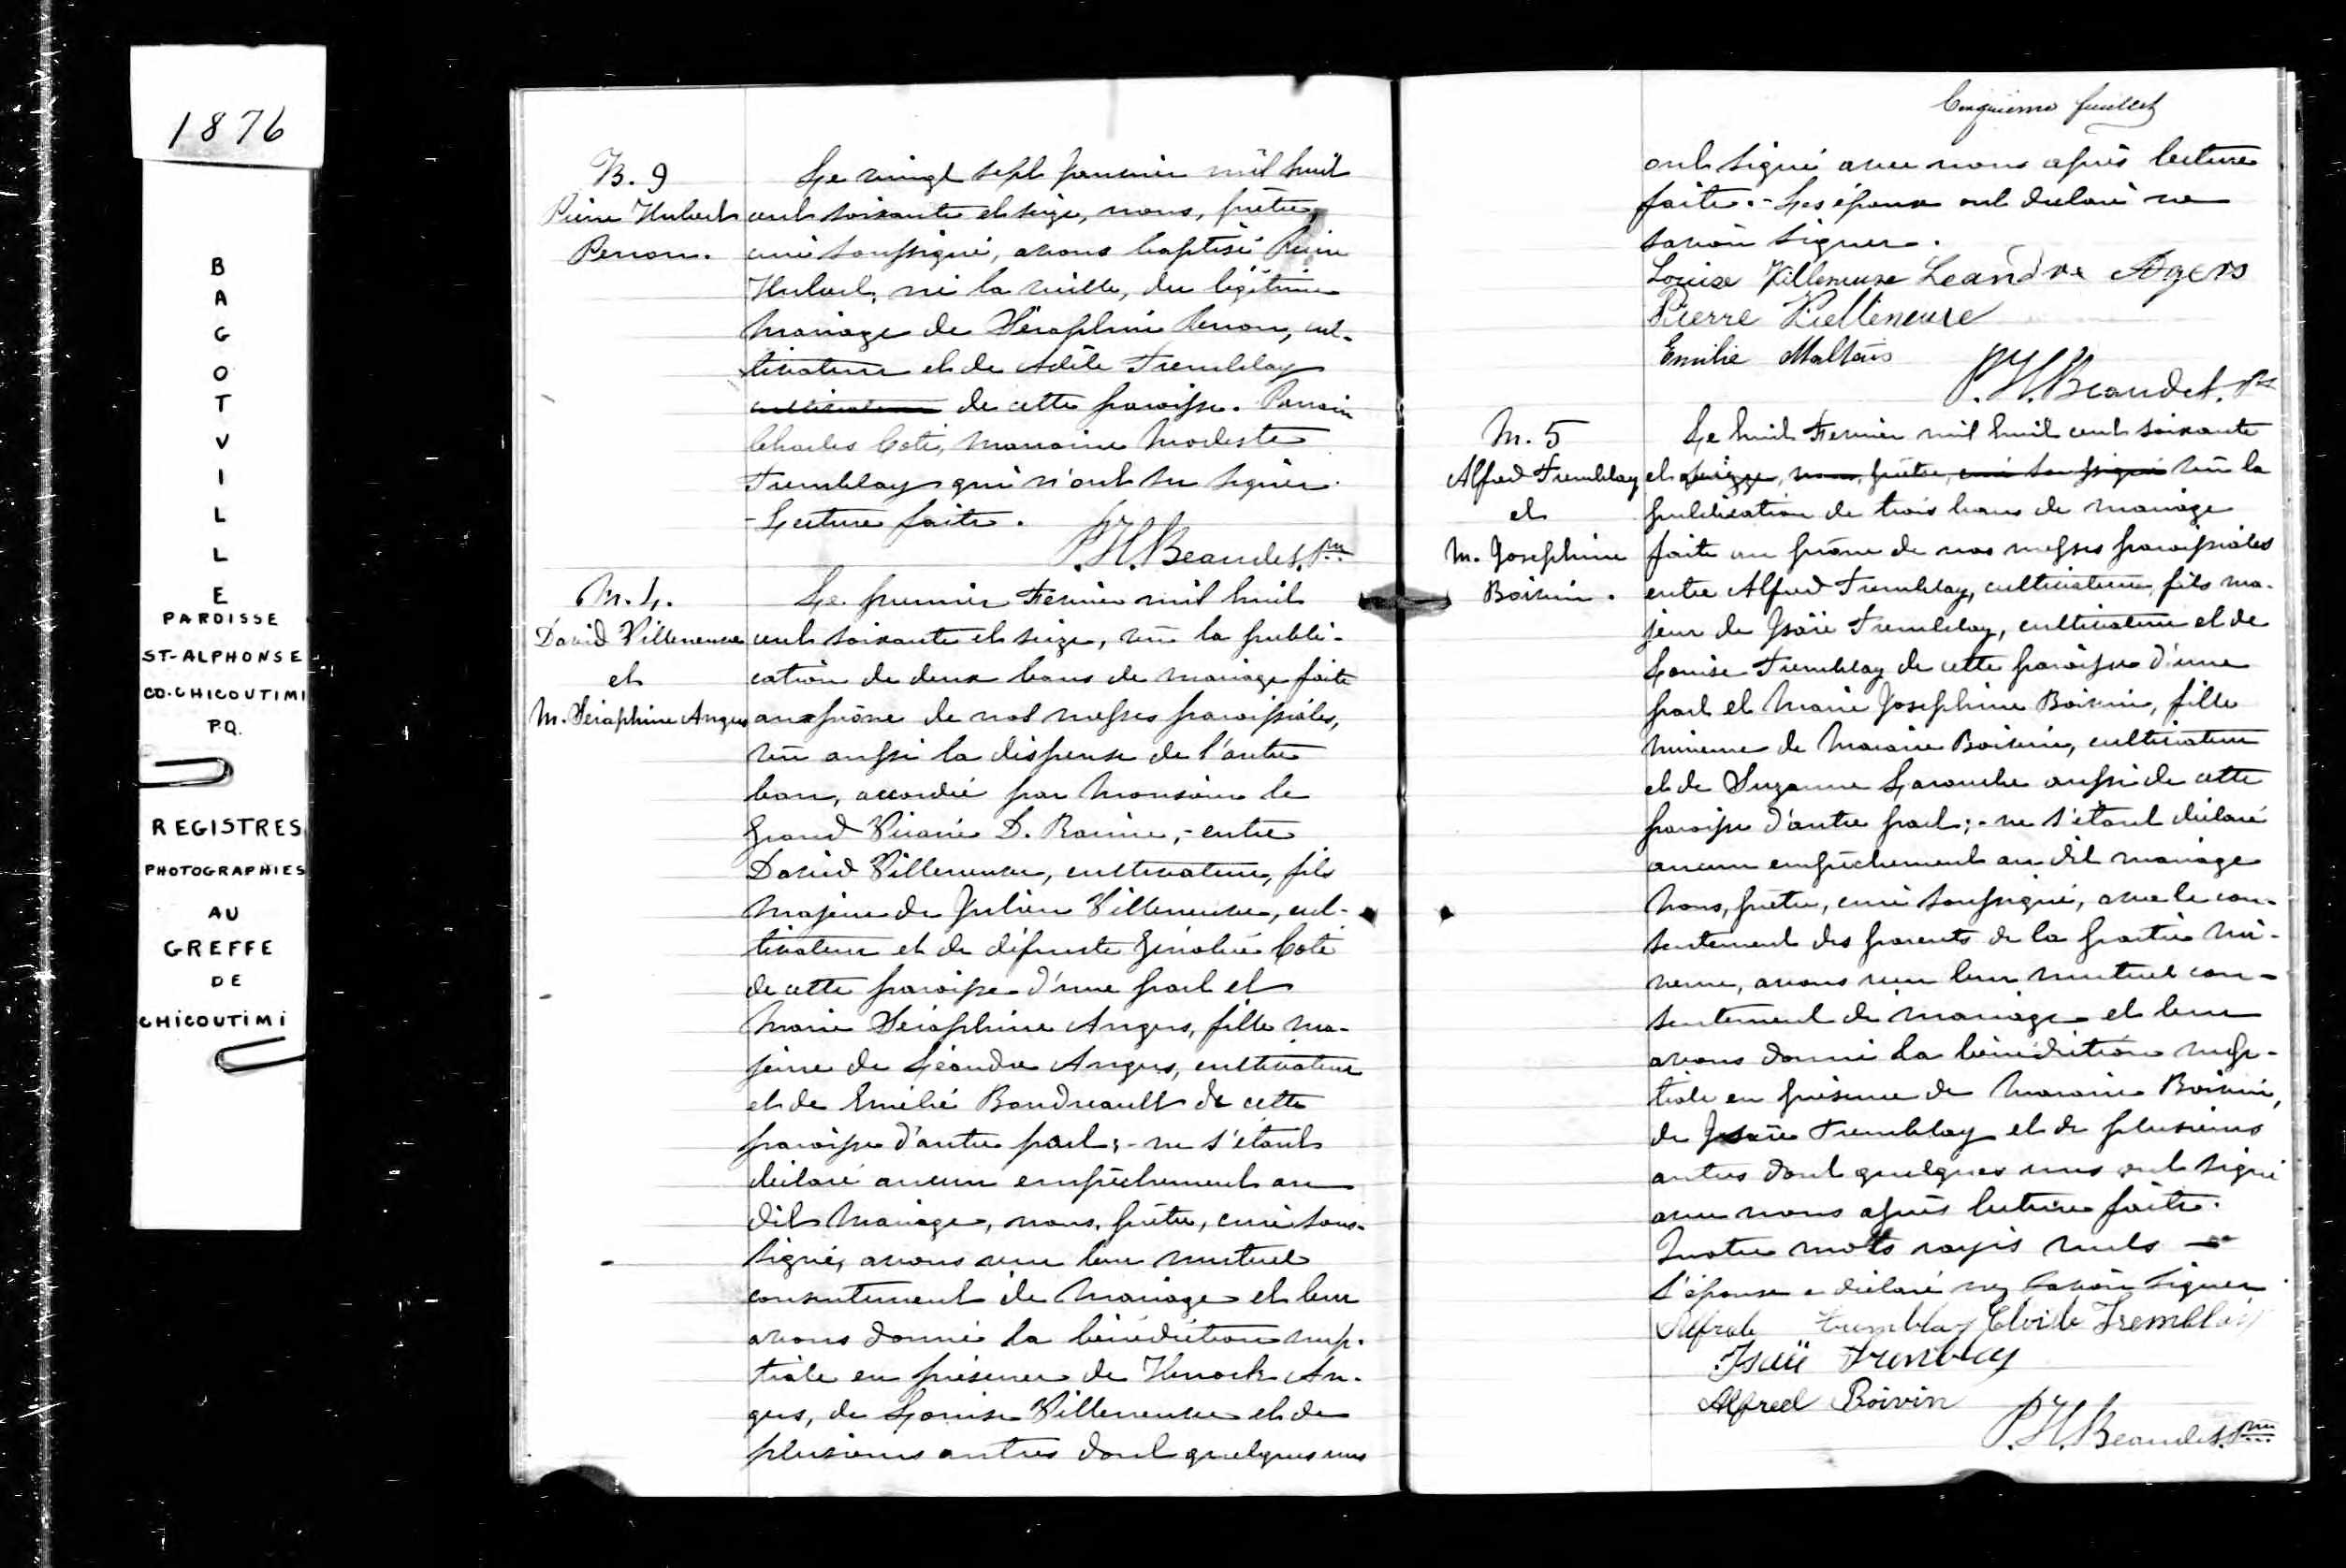 1876
B
A
G
O
T
V
I
L
L
E
PAROISSE
ST-ALPHONSE
CO. CHICOUTIMI
P.Q.
REGISTRES
PHOTOGRAPHIES
AU
GREFFE
DE
CHICOUTIMI
B. 9
Pierre Hubert
Perron.
Le vingt sept Janvier mil huit
cent soixante et seize, nous, prêtre,
curé soussigné, avons baptisé Pierre
Hubert, né la veille, du légitime
mariage de Séraphin Perron, cul-
tivateur et de Adèle Tremblay
cultivateur de cette paroisse. Parrain
Charles Coté, marraine Modeste
Tremblay qui n'ont su signer.
- Lecture faite.
P. H. Beaudet, Ptre
M. 4.
David Villeneuve
et
M. Séraphine Angers
Le premier Fevrier mil huit
cent soixante et seize, vû la publi-
cation de deux bans de mariage faite
au prône de nos messes paroissiales,
vu aussi la dispense de l'autre
ban, accordée par Monsieur le
Grand Vicaire D. Racine, - entre
David Villeneuve, cultivateur, fils
majeur de Julien Villeneuve, cul-
tivateur et de défunte Coté
de cette paroisse d'une part et
Marie Séraphine Angers, fille ma-
jeure de Léandre Angers, cultivateur
et de Emélie Boudreault de cette
paroisse d'autre part; - ne s'étant
déclaré aucun empêchement au
dit mariage, nous, prêtre, curé sous-
signé, avons reçu leur mutuel
consentement de mariage et leur
avons donné la bénédiction nup-
tiale en présence de Henock An-
gers, de Louise Villeneuve et de
plusieurs autres dont quelques uns
Cinquième feuillet
ont signé avec nous après lecture
faite. - Les époux ont déclaré ne
savoir signer.
Louise Villeneuve Leandre Agers
Pierre Villeneuve
Emilie Maltais
P. H. Beaudet, Ptre
M. 5
Alfred Tremblay
et
M. Josephine
Boivin.
Le huit Fevrier mil huit cent soixante
et seize, nous, prêtre, curé soussigné vû la
publication de trois bans de mariage
faite au prône de nos messes paroissiales
entre Alfred Tremblay, cultivateur, fils ma-
jeur de Isaïe Tremblay, cultivateur et de
Louise Tremblay de cette paroisse d'une
part et Marie Josephine Boivin, fille
mineure de Boivin, cultivateur
et de Suzanne Larouche aussi de cette
paroisse d'autre part; - ne s'étant déclaré
aucun empêchement au dit mariage
Nous, prêtre, curé soussigné, avec le con-
sentement des parents de la partie mi-
neure, avons reçu leur mutuel con-
sentement de mariage et leur
avons donné la bénédiction nup-
tiale en présence de Boivin,
de Isaïe Tremblay et de plusieurs
autres dont quelques uns ont signé
avec nous après lecture faite.
Quatre mots rayés nuls
L'épouse a déclaré ne savoir signer
Alfrade Tremblay Tremblay
Isaïe Tremblay
Alfred Boivin
P. H. Beaudet, Ptre